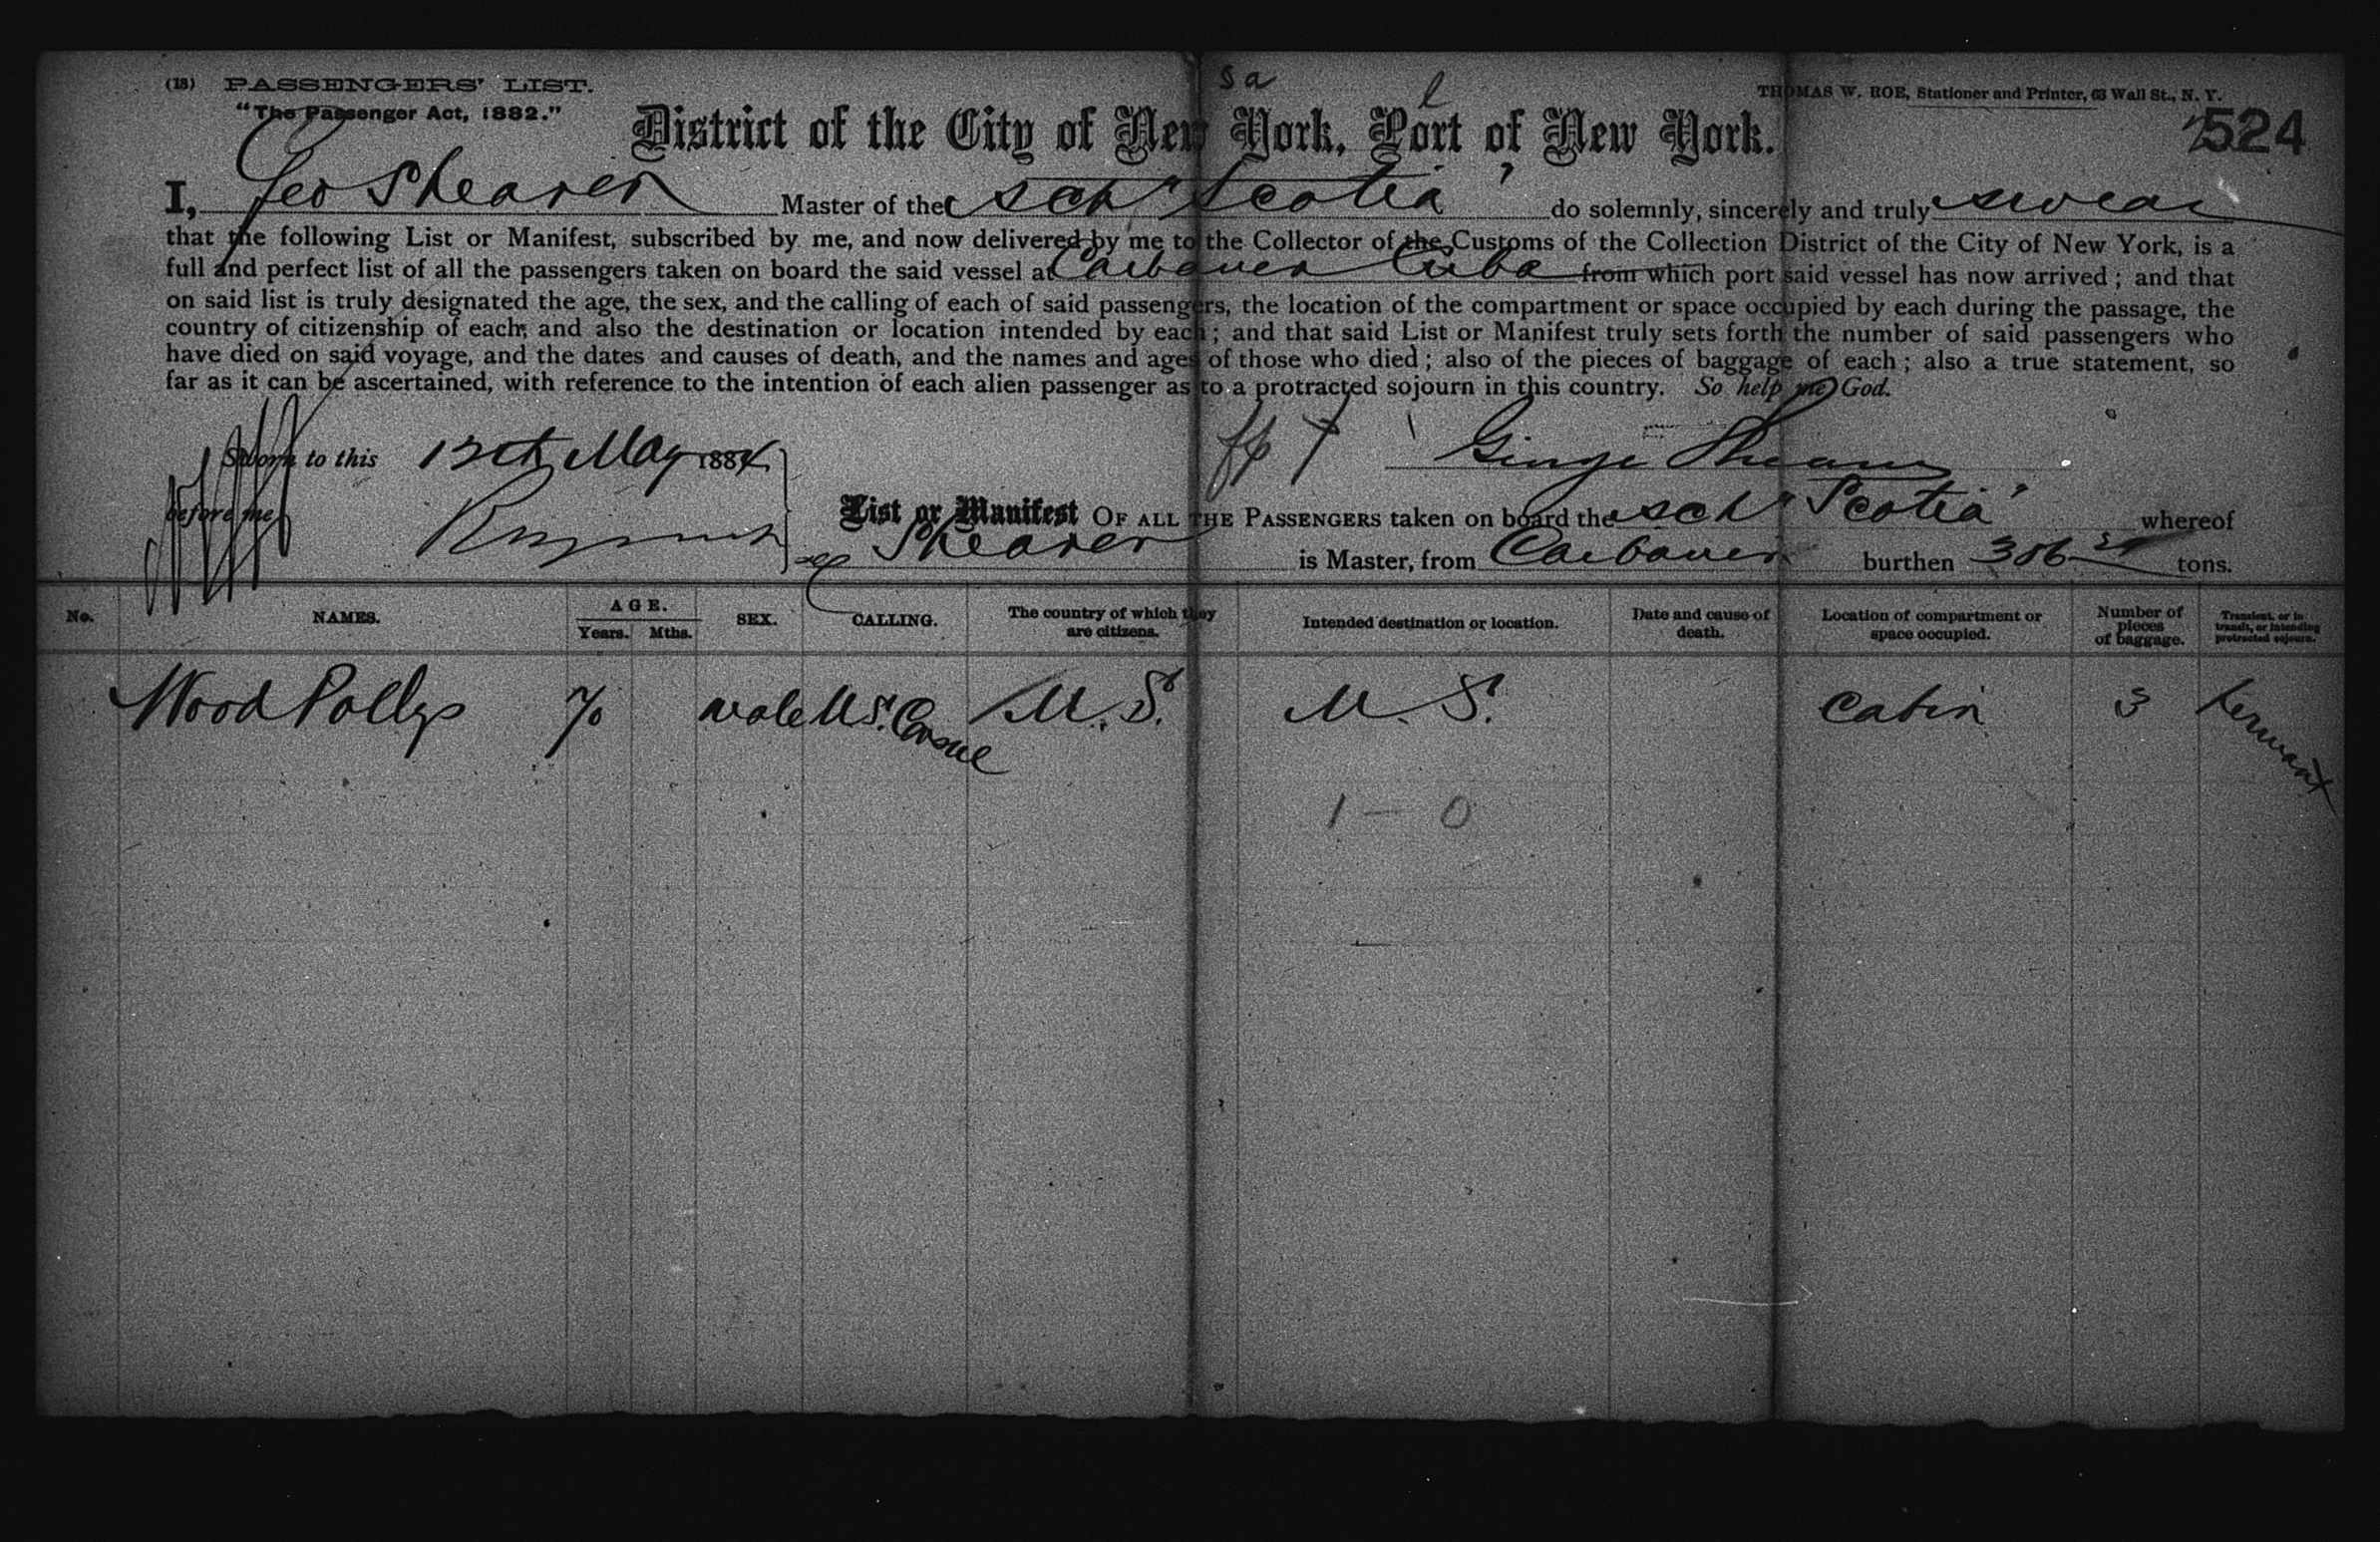 (13) PASSENGERS' LIST.
"The Passenger Act, 1882."
sa
l
THOMAS W. ROE, Stationer and Printer, 63 Wall St., N. Y.
District of the City of New York, Port of New York.
524
I, Geo Shearer Master of the Sch "Scotia" do solemnly, sincerely and truly swear
that the following List or Manifest, subscribed by me, and now delivered by me to the Collector of the Customs of the Collection District of the City of New York, is a
full and perfect list of all the passengers taken on board the said vessel at Caibarien Cuba from which port said vessel has now arrived; and that
on said list is truly designated the age, the sex, and the calling of each of said passengers, the location of the compartment or space occupied by each during the passage, the
country of citizenship of each; and also the destination or location intended by each; and that said List or Manifest truly sets forth the number of said passengers who
have died on said voyage, and the dates and causes of death, and the names and ages of those who died; also of the pieces of baggage of each; also a true statement, so
far as it can be ascertained, with reference to the intention of each alien passenger as to a protracted sojourn in this country. So help me God.
Sworn to this 12th May 1884
George Shearer
before me
List or Manifest OF ALL THE PASSENGERS taken on board the Sch "Scotia" whereof
Shearer is Master, from Caibarien burthen 306 tons.
No. NAMES. AGE. Years. Mths. SEX. CALLING. The country of which they are citizens. Intended destination or location. Date and cause of death. Location of compartment or space occupied. Number of pieces of baggage. Transient, or in transit, or intending protracted sojourn.
Wood Pollys 70 male U S. Consul U. S. U. S. Cabin 3
1 — 0